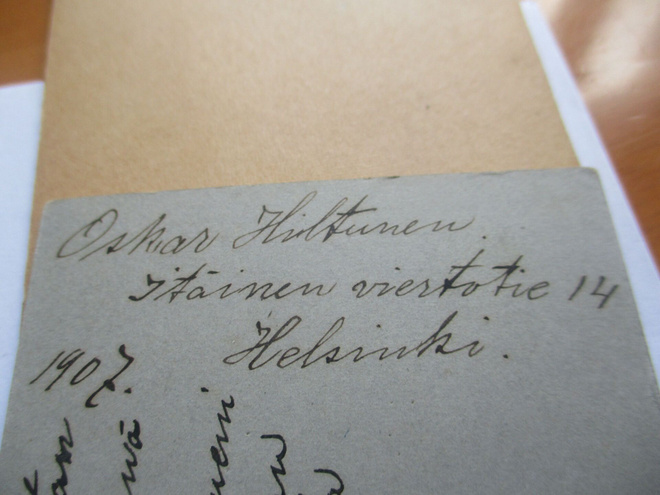 Oskar Hiltunen.
Itäinen viertotie 14
Helsinki.
1907.